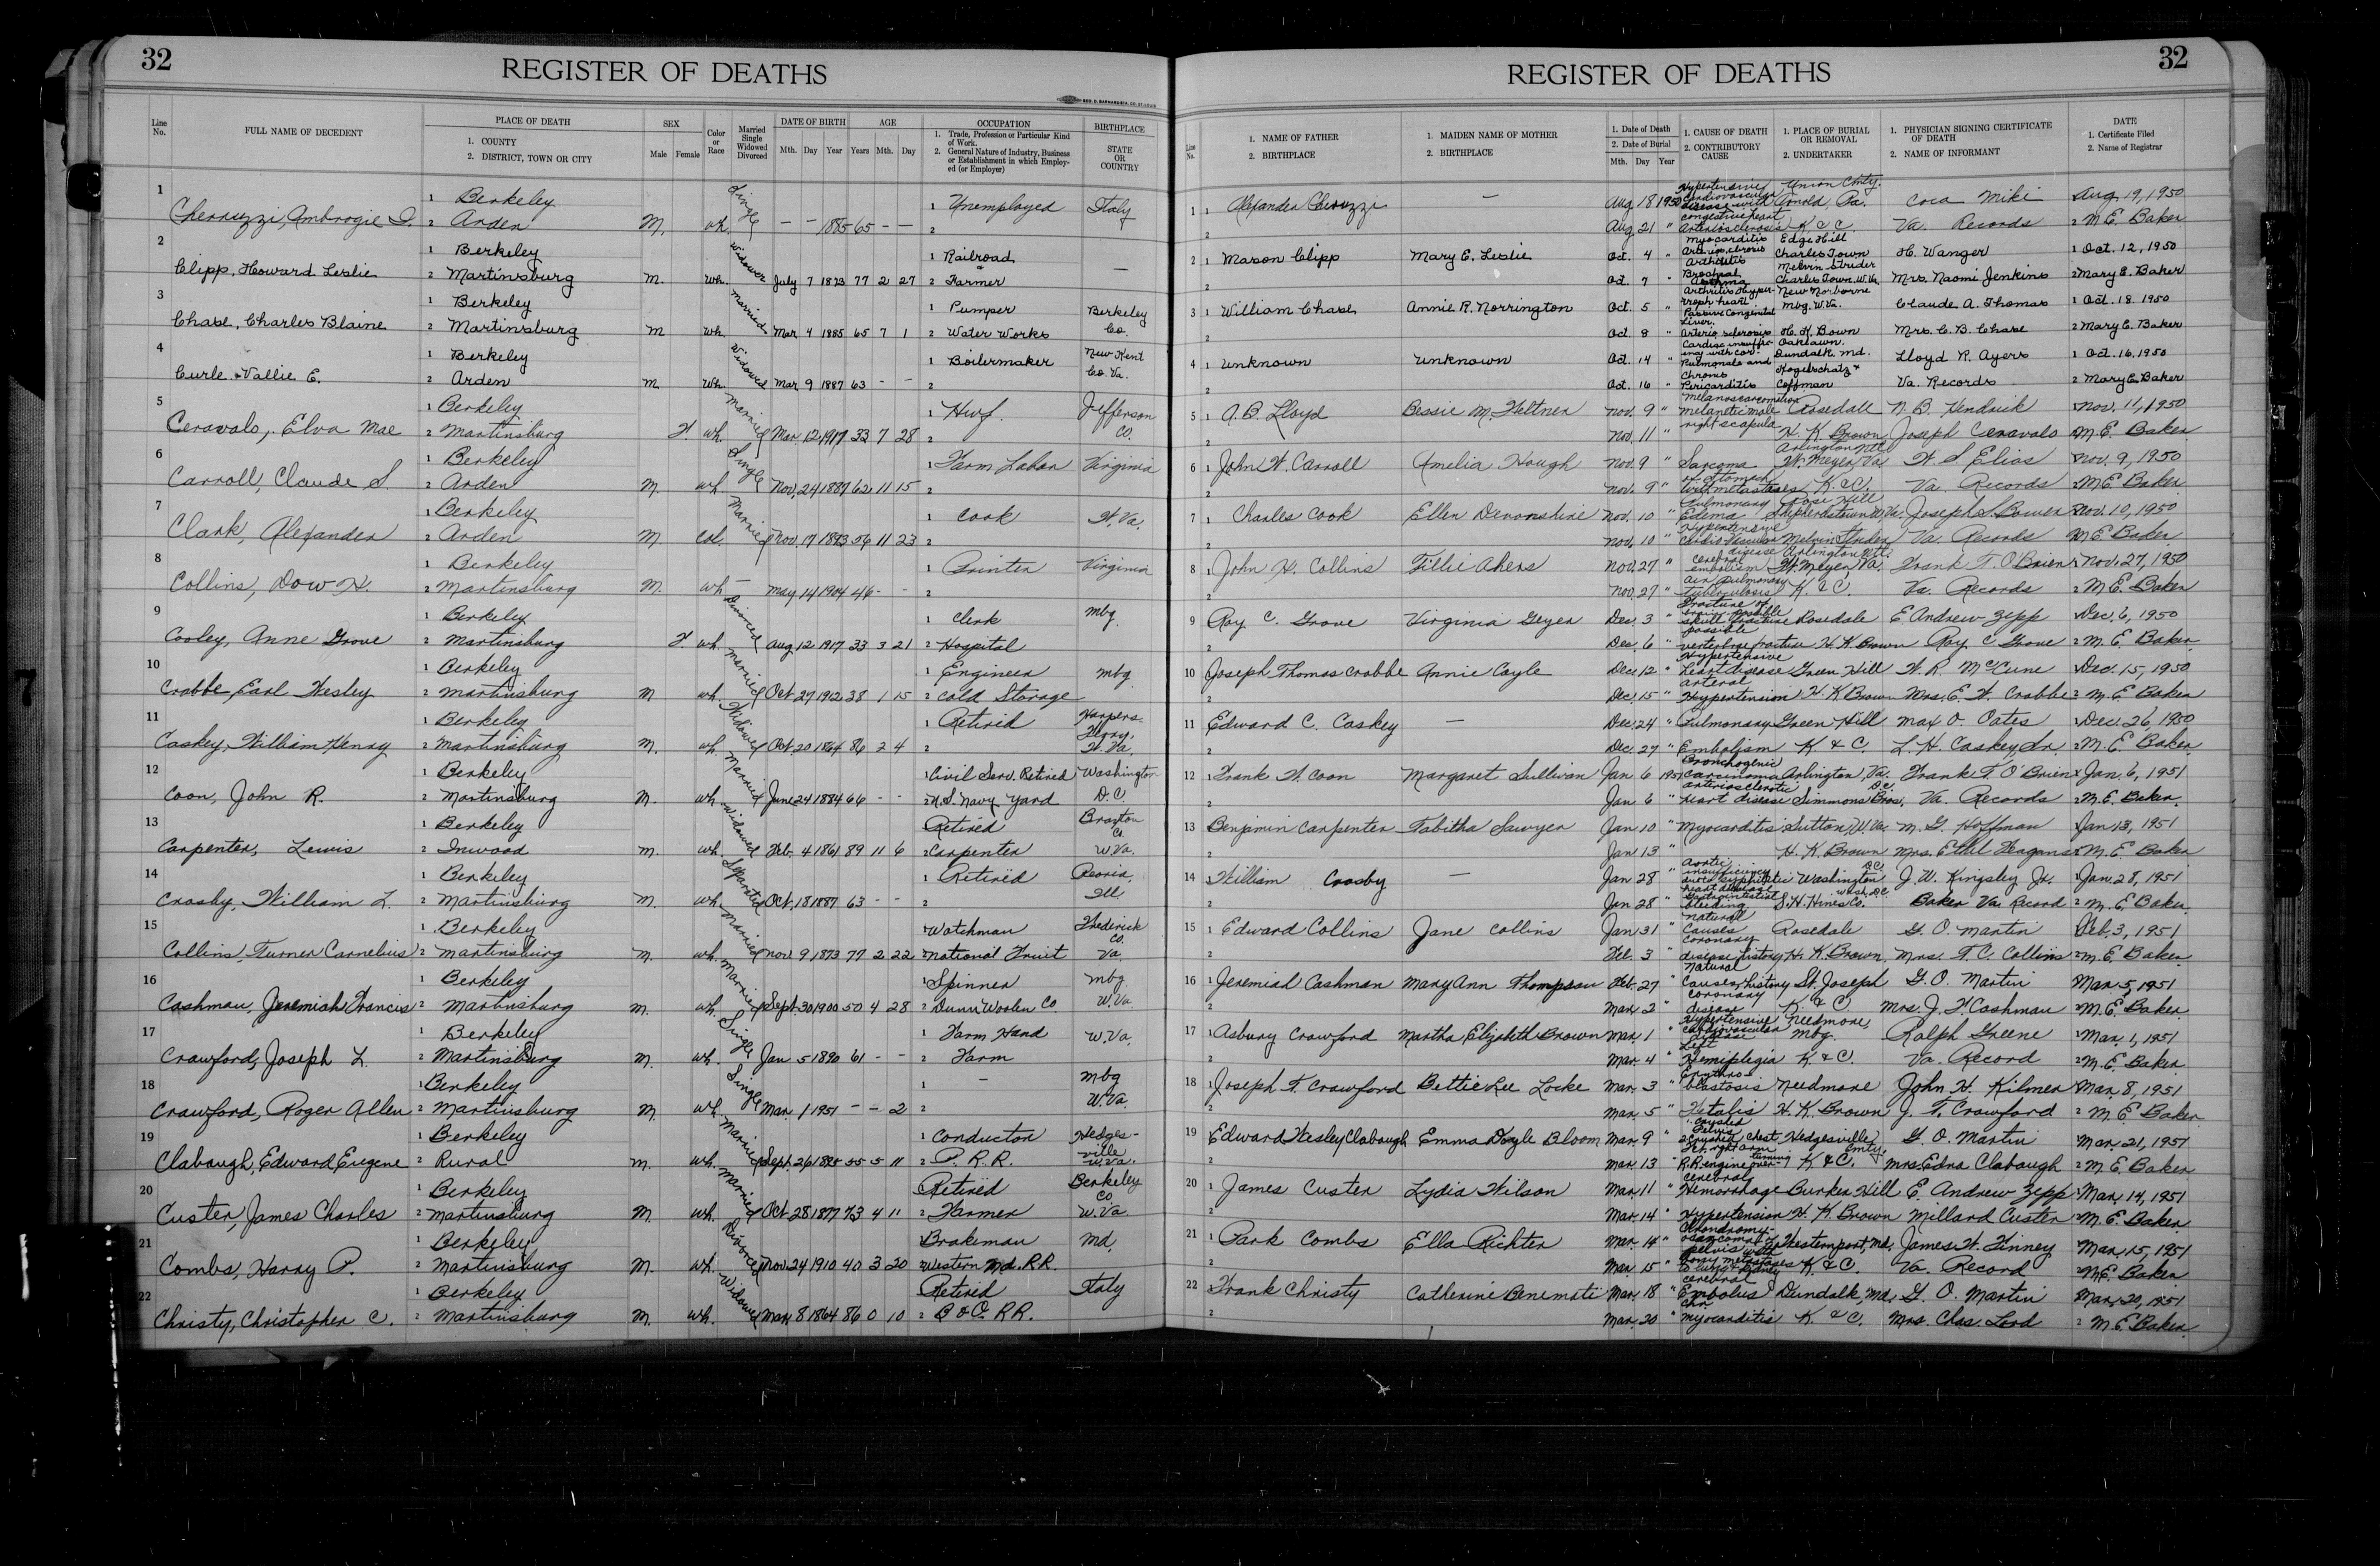 32
REGISTER OF DEATHS
Line No.
FULL NAME OF DECEDENT
PLACE OF DEATH
1. COUNTY
2. DISTRICT, TOWN OR CITY
SEX
Male Female
Color or Race
Married Single Widowed Divorced
DATE OF BIRTH
Mth. Day Year
AGE
Years Mth. Day
OCCUPATION
1. Trade, Profession or Particular Kind of Work.
2. General Nature of Industry, Business or Establishment in which Employed (or Employer)
BIRTHPLACE
STATE OR COUNTRY
1 Berkeley 1 Unemployed Italy
Cherruzzi, Ambrogie 2 Arden M. wh. Single — — 1885 65 — — 2
2 1 Berkeley 1 Railroad
Clipp, Howard Leslie 2 Martinsburg M. Wh. Widower July 7 1873 77 2 27 2 Farmer —
3 1 Berkeley 1 Pumper Berkeley
Chase, Charles Blaine 2 Martinsburg M Wh. Married Mar. 4 1885 65 7 1 2 Water Works Co.
4 1 Berkeley 1 Boilermaker New Kent
Curle, Vallie E. 2 Arden M. Wh. Widowed Mar. 9 1887 63 — — 2 Co. Va.
5 1 Berkeley 1 Hwf. Jefferson
Ceravalo, Elva Mae 2 Martinsburg F. wh. Married Mar. 12 1917 33 7 28 2 Co.
6 1 Berkeley 1 Farm Labor Virginia
Carroll, Claude S. 2 Arden M. wh. Single Nov. 24 1887 62 11 15 2
7 1 Berkeley 1 Cook W. Va.
Clark, Alexander 2 Arden M. Col. Married Nov. 17 1893 56 11 23 2
8 1 Berkeley 1 Printer Virginia
Collins, Dow H. 2 Martinsburg M. wh — May 14 1904 46 - - 2
9 1 Berkeley 1 Clerk Mbg.
Cooley, Anne Grove 2 Martinsburg F. wh. Divorced Aug. 12 1917 33 3 21 2 Hospital
10 1 Berkeley 1 Engineer Mbg
Crabbe, Earl Wesley 2 Martinsburg M wh. Married Oct. 27 1912 38 1 15 2 Cold Storage
11 1 Berkeley 1 Retired Harpers Ferry, W. Va.
Caskey, William Henry 2 Martinsburg M. wh. Widowed Oct. 20 1864 86 2 4 2
12 1 Berkeley 1 Civil Serv. Retired Washington
Coon, John R. 2 Martinsburg M. wh. Married June 24 1884 66 - - 2 U.S. Navy Yard D.C.
13 1 Berkeley Retired Braxton Co.
Carpenter, Lewis 2 Inwood M. wh. Widowed Feb. 4 1861 89 11 6 2 Carpenter W. Va.
14 1 Berkeley 1 Retired Peoria,
Crosby, William L. 2 Martinsburg M. wh. Separated Oct. 18 1887 63 - - 2 Ill.
15 1 Berkeley Watchman Frederick Co.
Collins, Turner Cornelius 2 Martinsburg M. wh. Married Nov. 9 1873 77 2 22 National Fruit Va.
16 1 Berkeley Spinner Mbg
Cashman, Jeremiah Francis 2 Martinsburg M. wh. Married Sept. 30 1900 50 4 28 2 Dunn Woolen Co. W. Va.
17 1 Berkeley 1 Farm Hand W. Va.
Crawford, Joseph L. 2 Martinsburg M. wh. Single Jan 5 1890 61 - - 2 Farm
18 1 Berkeley 1 — Mbg
Crawford, Roger Allen 2 Martinsburg M. wh. Single Mar. 1 1951 - - 2 2 W. Va.
19 1 Berkeley 1 Conductor Hedges-
Clabaugh, Edward Eugene 2 Rural M. wh. Married Sept. 26 1895 55 5 11 2 P. R. R. ville W. Va.
20 1 Berkeley Retired Berkeley Co.
Custer, James Charles 2 Martinsburg M. wh. Married Oct. 28 1877 73 4 11 2 Farmer W. Va.
21 1 Berkeley Brakeman Md.
Combs, Harry P. 2 Martinsburg M. wh. Divorced Nov. 24 1910 40 3 20 Western Md. R.R.
22 1 Berkeley Retired Italy
Christy, Christopher C. 2 Martinsburg M. wh. Widowed Mar. 8 1864 86 0 10 2 B & O. R R.
32
REGISTER OF DEATHS
Line No.
1. NAME OF FATHER
2. BIRTHPLACE
1. MAIDEN NAME OF MOTHER
2. BIRTHPLACE
1. Date of Death
2. Date of Burial
Mth. Day Year
1. CAUSE OF DEATH
2. CONTRIBUTORY CAUSE
1. PLACE OF BURIAL OR REMOVAL
2. UNDERTAKER
1. PHYSICIAN SIGNING CERTIFICATE OF DEATH
2. NAME OF INFORMANT
DATE
1. Certificate Filed
2. Name of Registrar
1 1 Alexander Cheruzzi — Aug. 18 1950 Hypertensive cardiovascular disease with Union Cmty. Arnold, Pa. Coca Miki Aug. 19, 1950
2 Aug 21 " congestive heart Arteriosclerosis K & C. Va. Records 2 M E. Baker
2 1 Mason Clipp Mary E. Leslie Oct. 4 " Myocarditis Arthritis Edge Hill Charles Town H. Wanger 1 Oct. 12, 1950
Oct. 7 " Bronchial Asthma Melvin Strider Charles Town, W. Va. Mrs. Naomi Jenkins 2 Mary E. Baker
3 1 William Chase Annie R. Norrington Oct. 5 " Arthritis Hypertroph heart Passive Congenital Liver. New Norborne Mbg. W. Va. Claude A. Thomas 1 Oct. 18. 1950
2 Oct. 8 " Arterio sclerosis H. K. Bown Mrs. C. B. Chase 2 Mary E. Baker
4 1 Unknown Unknown Oct. 14 " Cardiac insufficiency with cor. Pulmonale and Oaklawn. Dundalk, Md. Lloyd R. Ayers 1 Oct. 16, 1950
2 Oct. 16 " Chronic Pericarditis Hogelschatz & Coffman Va. Records 2 Mary E. Baker
5 1 A. B. Lloyd Bessie M. Feltner Nov. 9 " melanotic mole right scapula Rosedale N. B. Hendrick Nov. 11, 1950
2 Nov. 11 " H. K. Brown Joseph Ceravalo M. E. Baker
6 1 John W. Carroll Amelia Hough Nov. 9 " Sarcoma of stomach Arlington Ntl. Ft. Meyer, Va. W. S. Elias Nov. 9, 1950
2 Nov. 9 " with metastases K. & C. Va. Records 2 M. E. Baker
7 1 Charles Cook Ellen Devonshire Nov. 10 " Pulmonary Edema Rose Hill Shepherdstown, W. Va. Joseph L. Bower Nov. 10, 1950
2 Nov. 10 " Hypertensive Cardio Vascular disease Melvin Strider Va. Records M E Baker
8 1 John H. Collins Tillie Akers Nov. 27 " Cerebral embolism air Arlington Ntl. Ft. Meyer Va. Frank T. O'Brien Nov. 27, 1950
2 Nov. 27 " Pulmonary Tuberculosis K. & C. Va. Records 2 M E. Baker
9 1 Roy C. Grove Virginia Geyer Dec. 3 " Fracture of possible skull fracture Rosedale E Andrew Zepp Dec. 6, 1950
2 Dec. 6 " possible vertebrae fracture H. K Brown Roy C Grove 2 M. E. Baker
10 Joseph Thomas Crabbe Annie Cayle Dec. 12 " Hypertensive Heart disease Green Hill W. R. McCune Dec. 15, 1950
2 Dec. 15 " arterial Hypertension H. K Brown Mrs. E. W. Crabbe 2 M. E Baker
11 1 Edward C. Caskey — Dec. 24 " Pulmonary Green Hill Max O. Oates Dec. 26, 1950
2 Dec. 27 " Embolism K & C. L. H. Caskey, Sr. 2 M. E. Baker
12 1 Frank W. Coon Margaret Sullivan Jan 6 1951 Bronchogenic carcinoma Arlington, Va. Frank T. O'Brien Jan. 6, 1951
2 Jan 6 " arteriosclerotic heart disease Simmons Bros. D.C. Va. Records 2 M. E. Baker.
13 Benjmin Carpenter Tabitha Sawyer Jan 10 " Myocarditis Sutton, W. Va. M. G. Hoffman Jan 13, 1951
2 Jan 13 " H. K. Brown Mrs. Ethel Feagans M. E. Baker
14 1 William Crosby — Jan 28 " Aortic insufficiency due syphilitic heart disease Washington D.C. J. W. Kingsley Jr. Jan. 28, 1951
2 Jan 28 " Gastrointestinal bleeding S. H. Hines Co. Wash. D.C. Baker Va. Record 2 M. E. Baker
15 1 Edward Collins Jane Collins Jan 31 " natural causes Rosedale G. O. Martin Feb. 3, 1951
Feb. 3 " coronary disease history H. K. Brown Mrs. T. C. Collins 2 M. E. Baker
16 1 Jeremiah Cashman Mary Ann Thompson Feb. 27 " Natural Causes, history St. Joseph G. O. Martin Mar. 5, 1951
2 Mar. 2 " coronary disease K & C. Mrs. J. F. Cashman 2 M. E. Baker
17 1 Asbury Crawford Martha Elizabeth Brown Mar. 1 " Hypertensive Cardiovascular disease Needmore, Mbg. Ralph Greene Mar. 1, 1951
2 Mar. 4 " Left Hemiplegia K & C. Va. Record 2 M. E. Baker
18 1 Joseph T. Crawford Bettie Lee Locke Mar. 3 " Erythro- blastosis Needmore John H. Kilmer Mar. 8, 1951
2 Mar. 5 " Fetalis H. K. Brown J. T. Crawford 2 M. E Baker
19 Edward Wesley Clabaugh Emma Doyle Bloom Mar. 9 " Crushed Pelvis Crushed chest Hedgesville Cmty. G. O. Martin Mar. 21, 1951
2 Mar. 13 " right arm R.R engine turning over K & C. Mrs. Edna Clabaugh 2 M. E. Baker
20 1 James Custer Lydia Wilson Mar. 11 " Cerebral Hemorrhage Burker Hill E. Andrew Zepp Mar. 14, 1951
2 Mar. 14 " Hypertension H. K. Brown Millard Custer M. E. Baker
21 1 Park Combs Ella Richter Mar. 14 " Chondromyosarcoma of pelvis with Westernport, Md. James W. Finney Mar. 15, 1951
Mar. 15 " metastases K & C. Va. Record M. E. Baker
22 1 Frank Christy Catherine Benemati Mar. 18 " cerebral Embolus Dundalk, Md. G. O. Martin Mar. 20, 1951
2 Mar. 20 " Chr. myocarditis K & C. Mrs. Chas. Lord 2 M. E. Baker